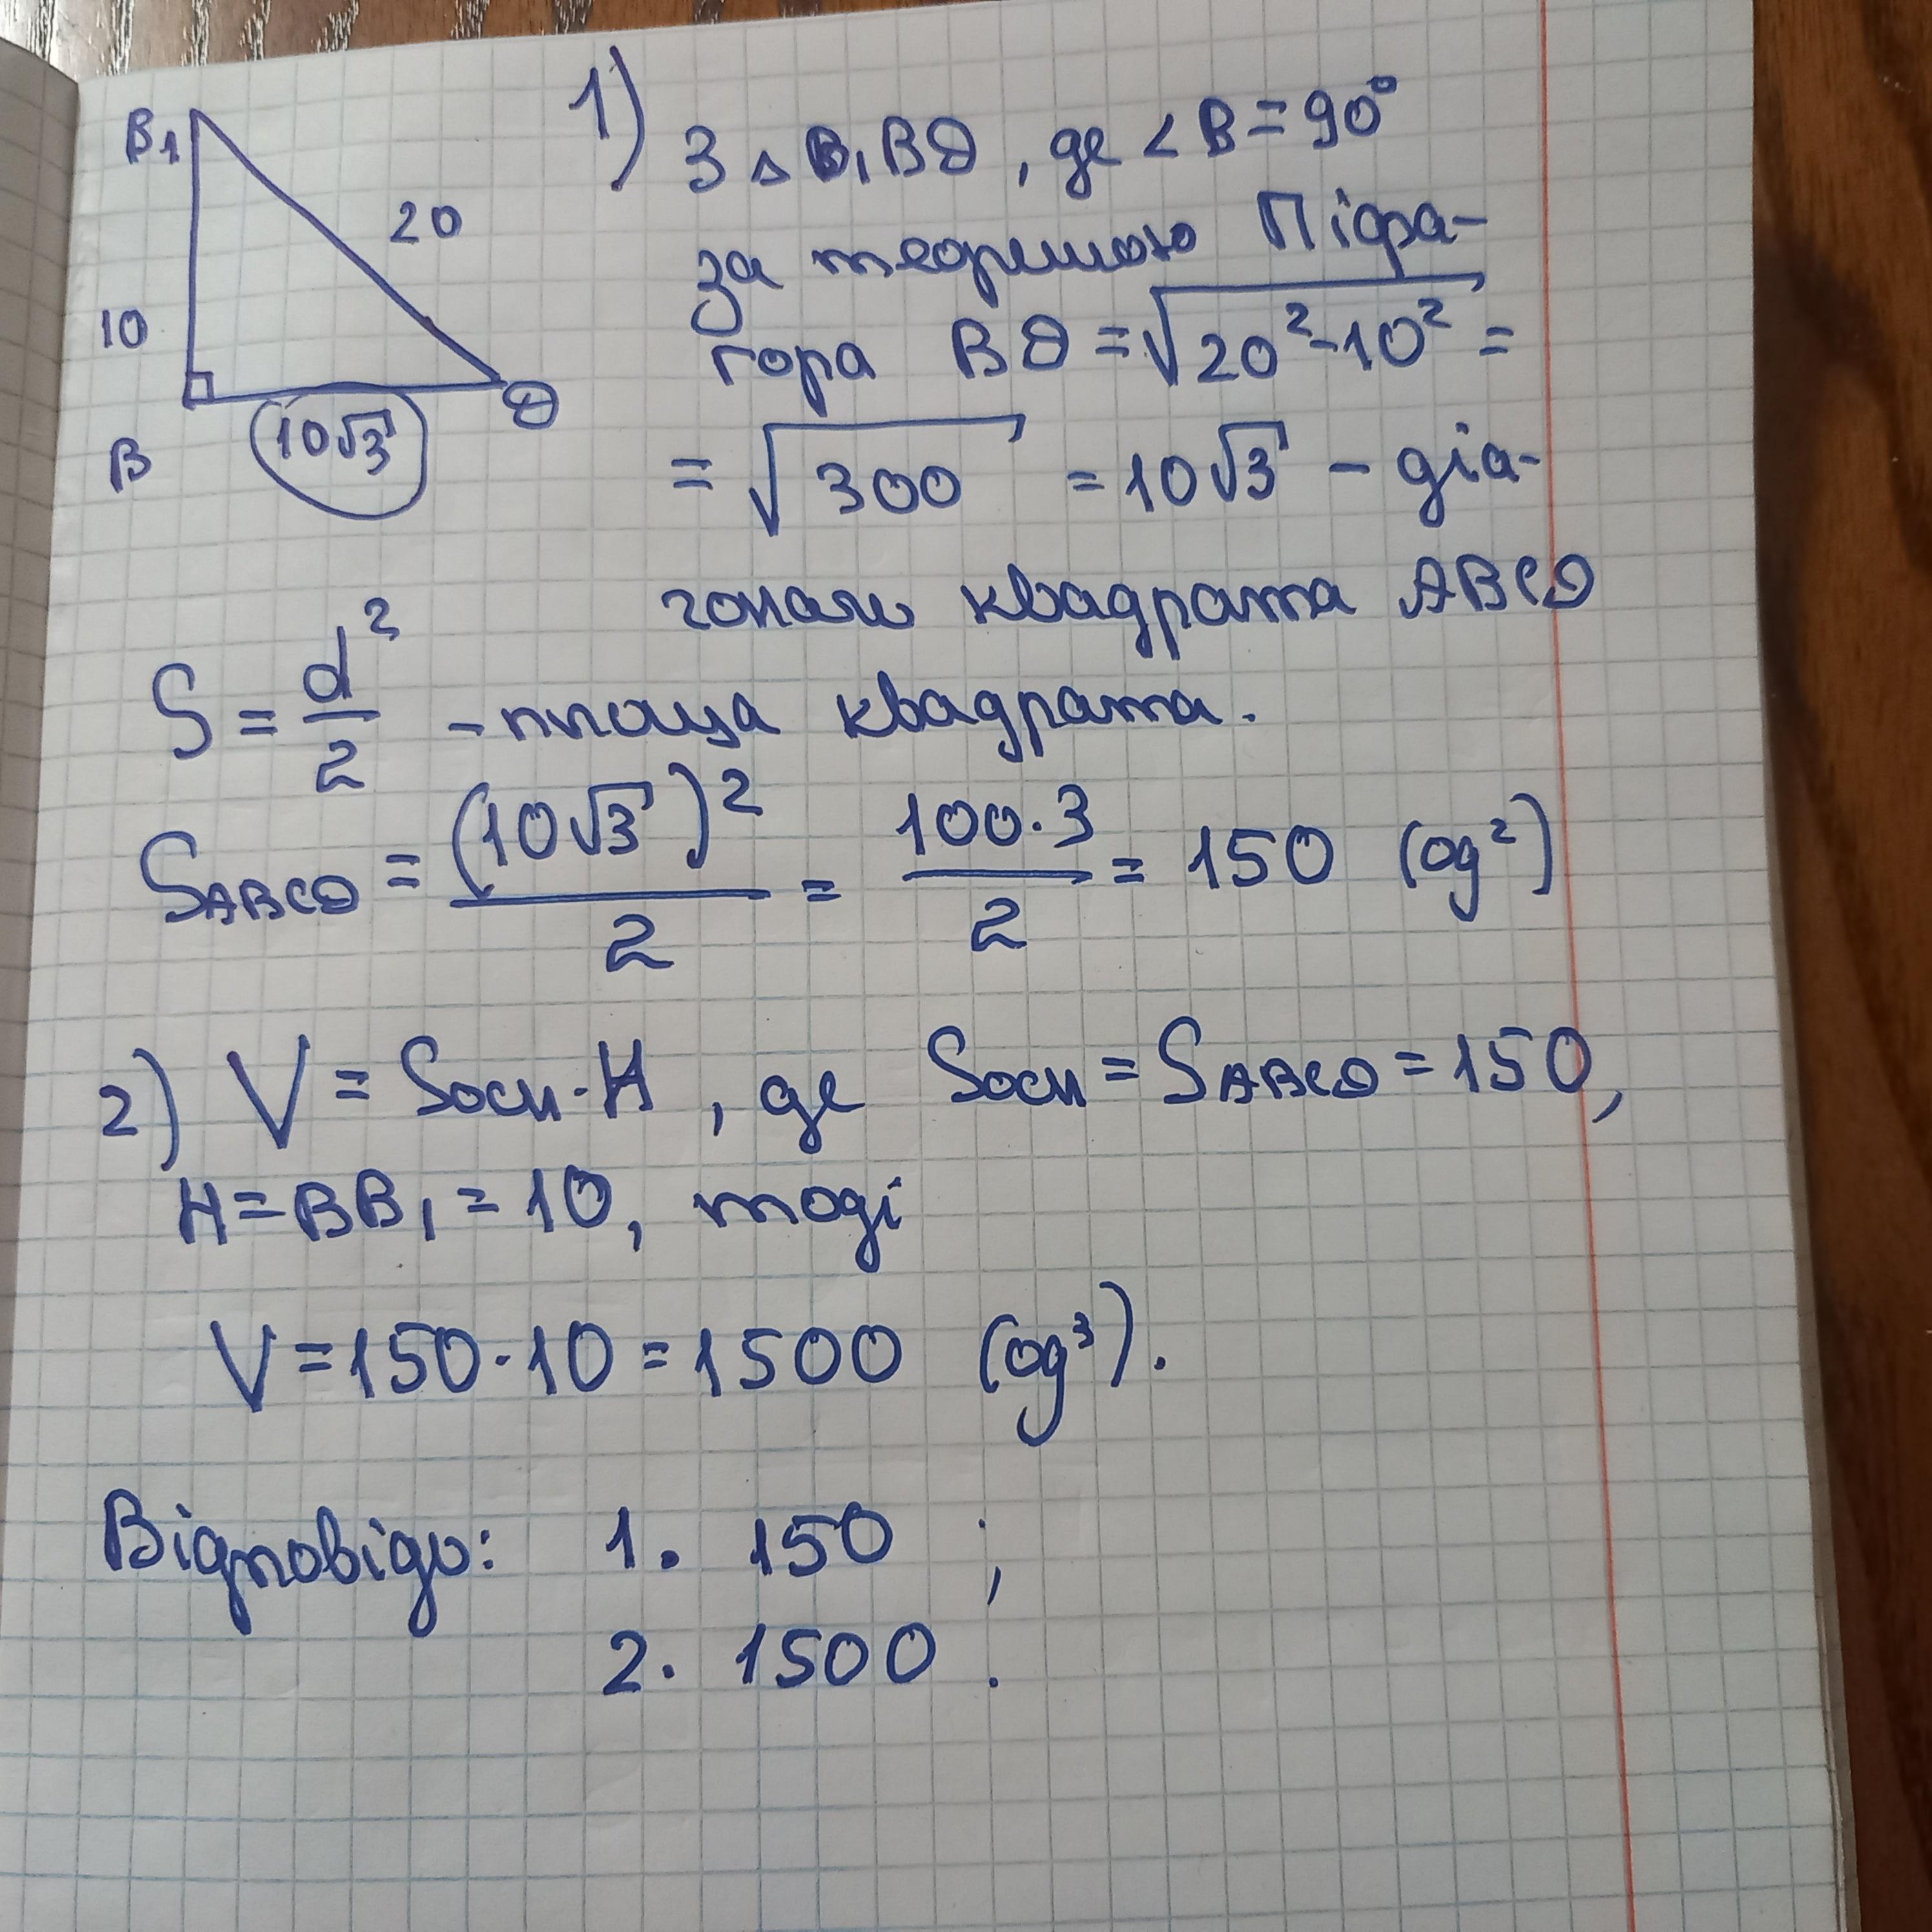 B₁
20
10
B
10√3
D
1) З △ B₁BD, де ∠B = 90°
за теоремою Піфа-
гора BD = √(20² - 10²) =
= √300 = 10√3 - діа-
гональ квадрата ABCD
S = d²/2 - площа квадрата.
S_ABCD = (10√3)²/2 = 100·3/2 = 150 (од²)
2) V = Sосн·H, де Sосн = S_ABCD = 150,
H = BB₁ = 10, тоді
V = 150·10 = 1500 (од³).
Відповідь: 1. 150 ;
2. 1500 .